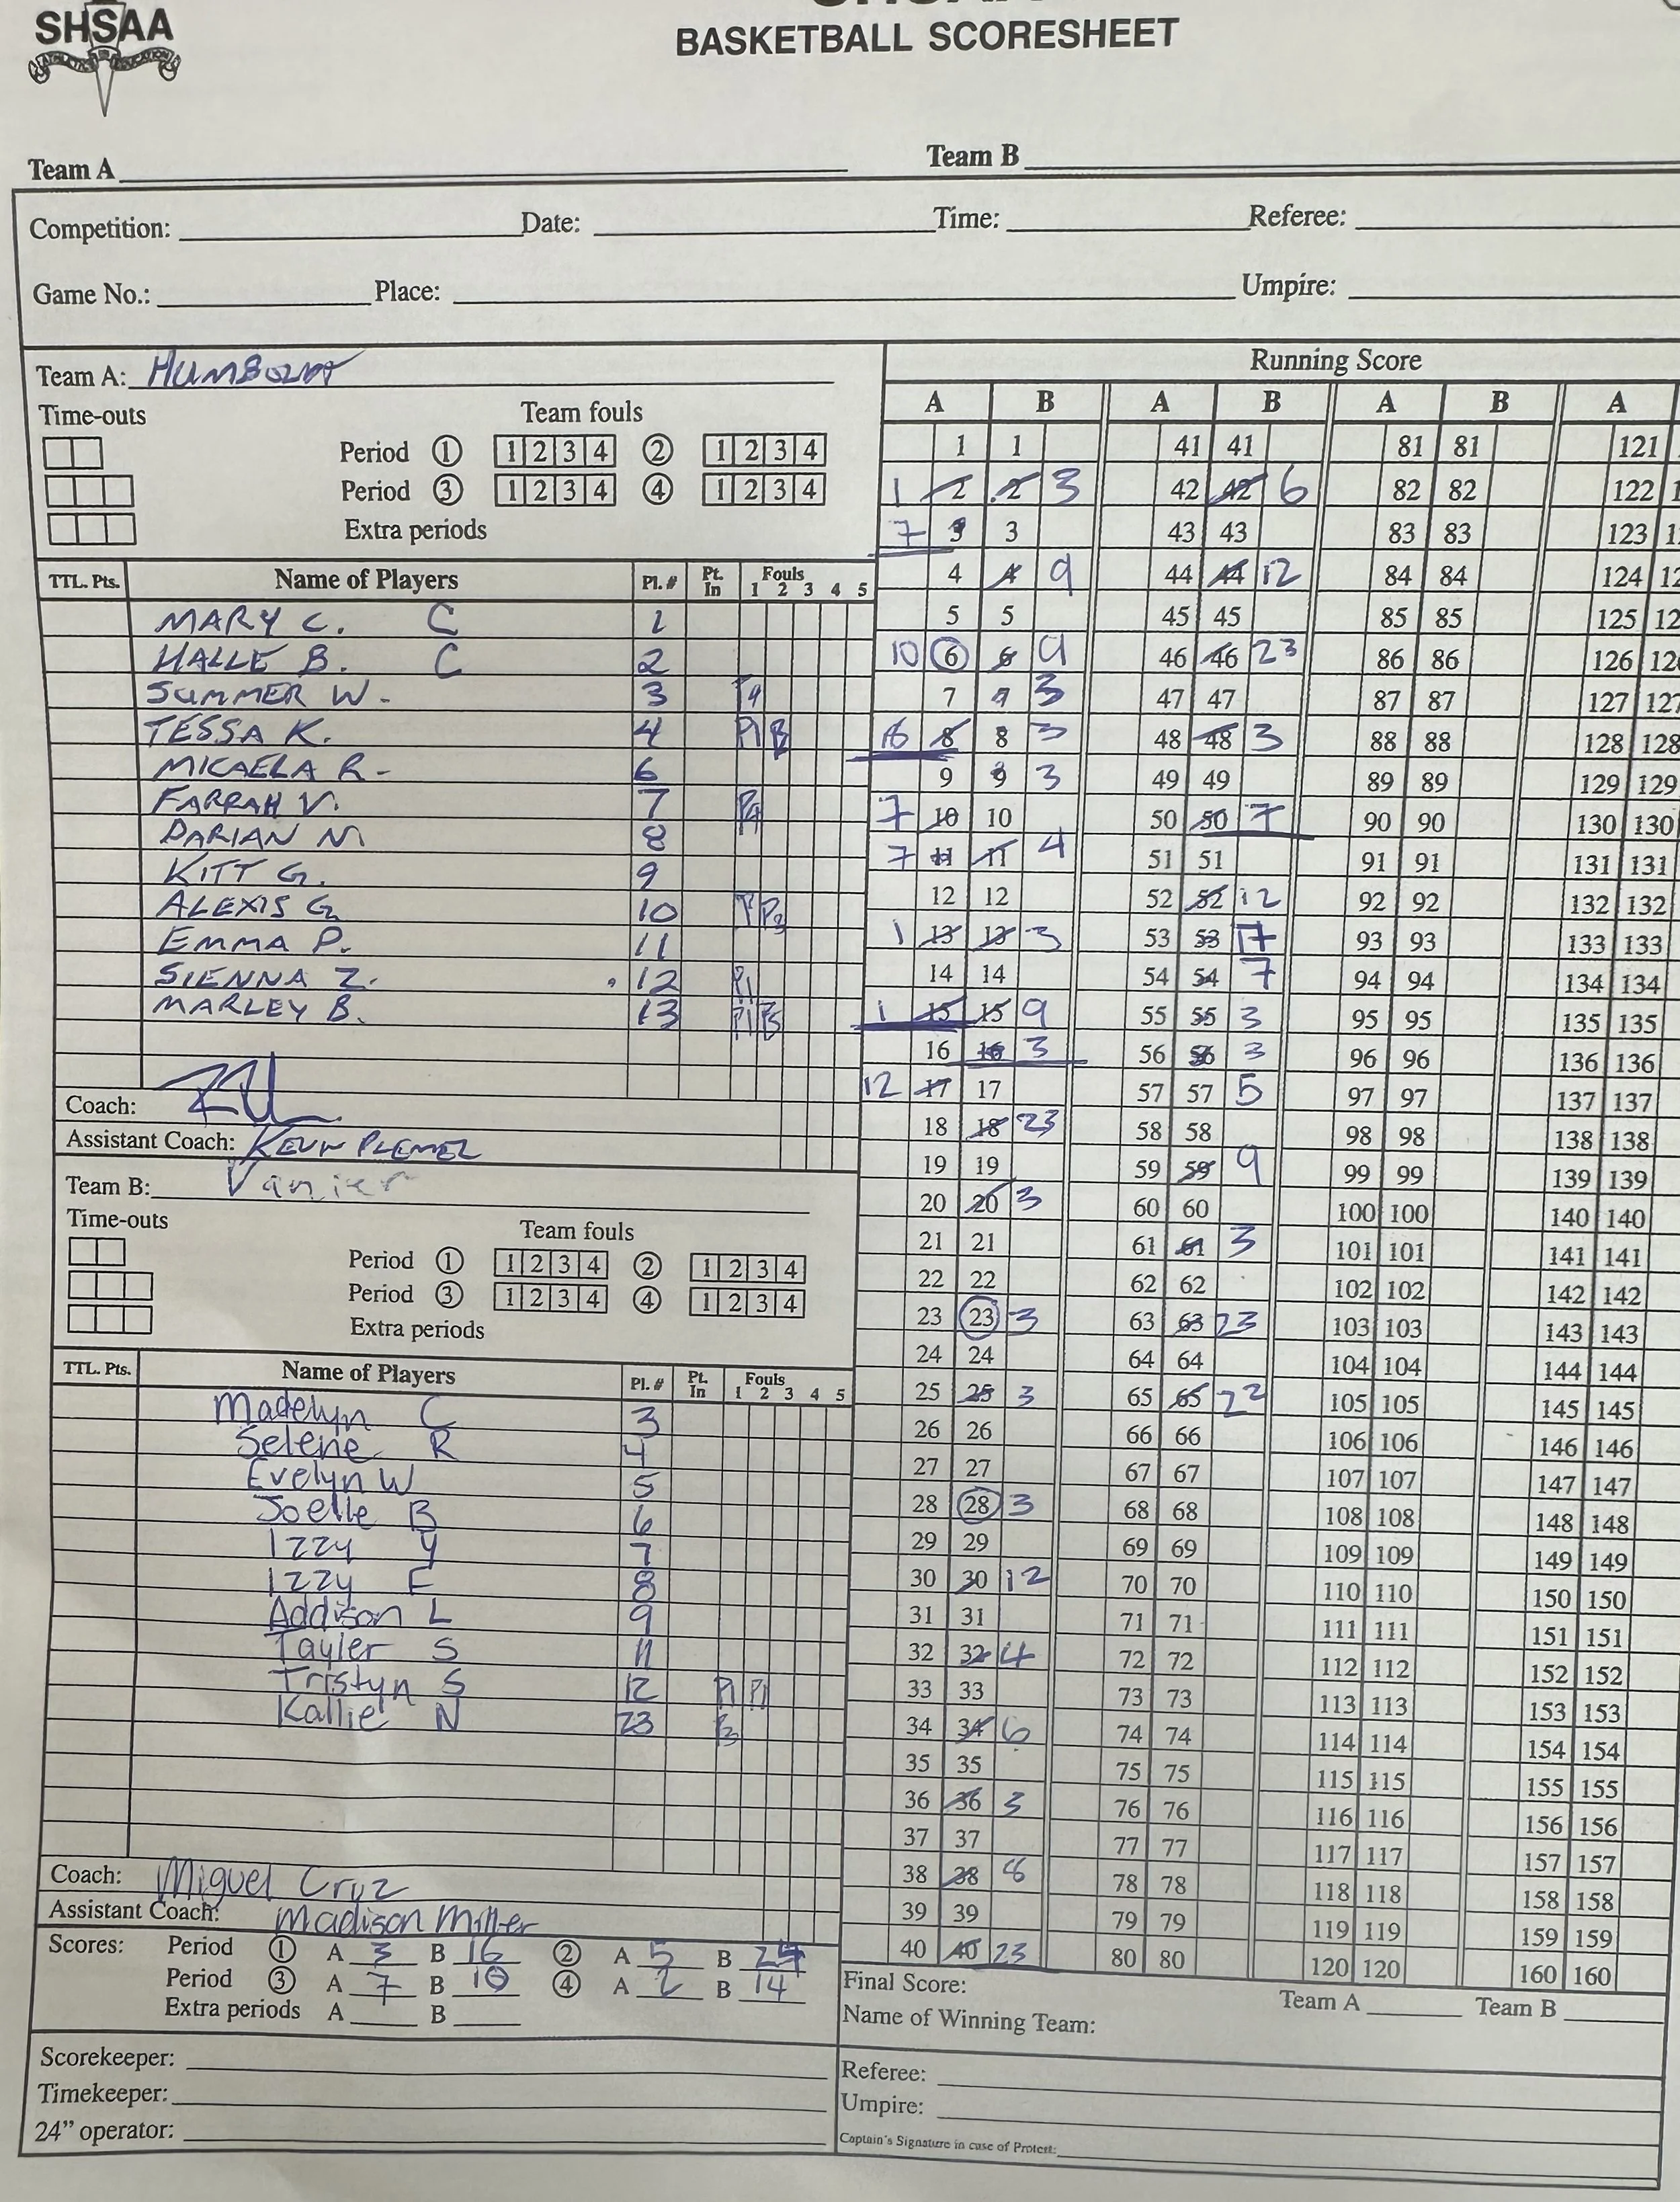 SHSAA
ATHLETICS IN EDUCATION
BASKETBALL SCORESHEET
Team A
Team B
Competition: Date: Time: Referee:
Game No.: Place: Umpire:
Team A: HUMBOLDT
Time-outs Team fouls
Period 1 1 2 3 4 2 1 2 3 4
Period 3 1 2 3 4 4 1 2 3 4
Extra periods
TTL. Pts. Name of Players Pl. # Pt. In Fouls 1 2 3 4 5
MARY C. C 1
HALLE B. C 2
SUMMER W. 3 P4
TESSA K. 4 P1
MICAELA R- 6
FARRAH V. 7 P4
DARIAN N. 8
KITT G. 9
ALEXIS G. 10
EMMA P. 11
SIENNA Z. 12 P1
MARLEY B. 13 P1 P3
Coach:
Assistant Coach: KEVIN PLEMEL
Team B: Vanier
Time-outs Team fouls
Period 1 1 2 3 4 2 1 2 3 4
Period 3 1 2 3 4 4 1 2 3 4
Extra periods
TTL. Pts. Name of Players Pl. # Pt. In Fouls 1 2 3 4 5
Madelyn C 3
Selene R 4
Evelyn W 5
Joelle B 6
Izzy Y 7
Izzy F 8
Addison L 9
Tayler S 11
Tristyn S 12 P1 P1
Kallie N 23 P3
Coach: Miguel Cruz
Assistant Coach: Madison Miller
Scores: Period 1 A 3 B 16 2 A 5 B 24
Period 3 A 7 B 10 4 A 2 B 14
Extra periods A B
Scorekeeper:
Timekeeper:
24" operator:
Running Score
A B A B A B A
1 1 41 41 81 81 121
1 2 2 3 42 42 6 82 82 122
7 3 3 43 43 83 83 123
4 4 9 44 44 12 84 84 124
5 5 45 45 85 85 125
10 6 6 9 46 46 23 86 86 126
7 7 3 47 47 87 87 127
8 8 3 48 48 3 88 88 128 128
9 9 3 49 49 89 89 129 129
7 10 10 50 50 7 90 90 130 130
7 11 11 4 51 51 91 91 131 131
12 12 52 52 12 92 92 132 132
1 13 13 3 53 53 7 93 93 133 133
14 14 54 54 7 94 94 134 134
1 15 15 9 55 55 3 95 95 135 135
16 16 3 56 56 3 96 96 136 136
12 17 17 57 57 5 97 97 137 137
18 18 23 58 58 98 98 138 138
19 19 59 59 9 99 99 139 139
20 20 3 60 60 100 100 140 140
21 21 61 61 3 101 101 141 141
22 22 62 62 102 102 142 142
23 23 3 63 63 23 103 103 143 143
24 24 64 64 104 104 144 144
25 25 3 65 65 105 105 145 145
26 26 66 66 106 106 146 146
27 27 67 67 107 107 147 147
28 28 3 68 68 108 108 148 148
29 29 69 69 109 109 149 149
30 30 12 70 70 110 110 150 150
31 31 71 71 111 111 151 151
32 32 4 72 72 112 112 152 152
33 33 73 73 113 113 153 153
34 34 6 74 74 114 114 154 154
35 35 75 75 115 115 155 155
36 36 3 76 76 116 116 156 156
37 37 77 77 117 117 157 157
38 38 8 78 78 118 118 158 158
39 39 79 79 119 119 159 159
40 40 23 80 80 120 120 160 160
Final Score: Team A Team B
Name of Winning Team:
Referee:
Umpire:
Captain's Signature in case of Protest: